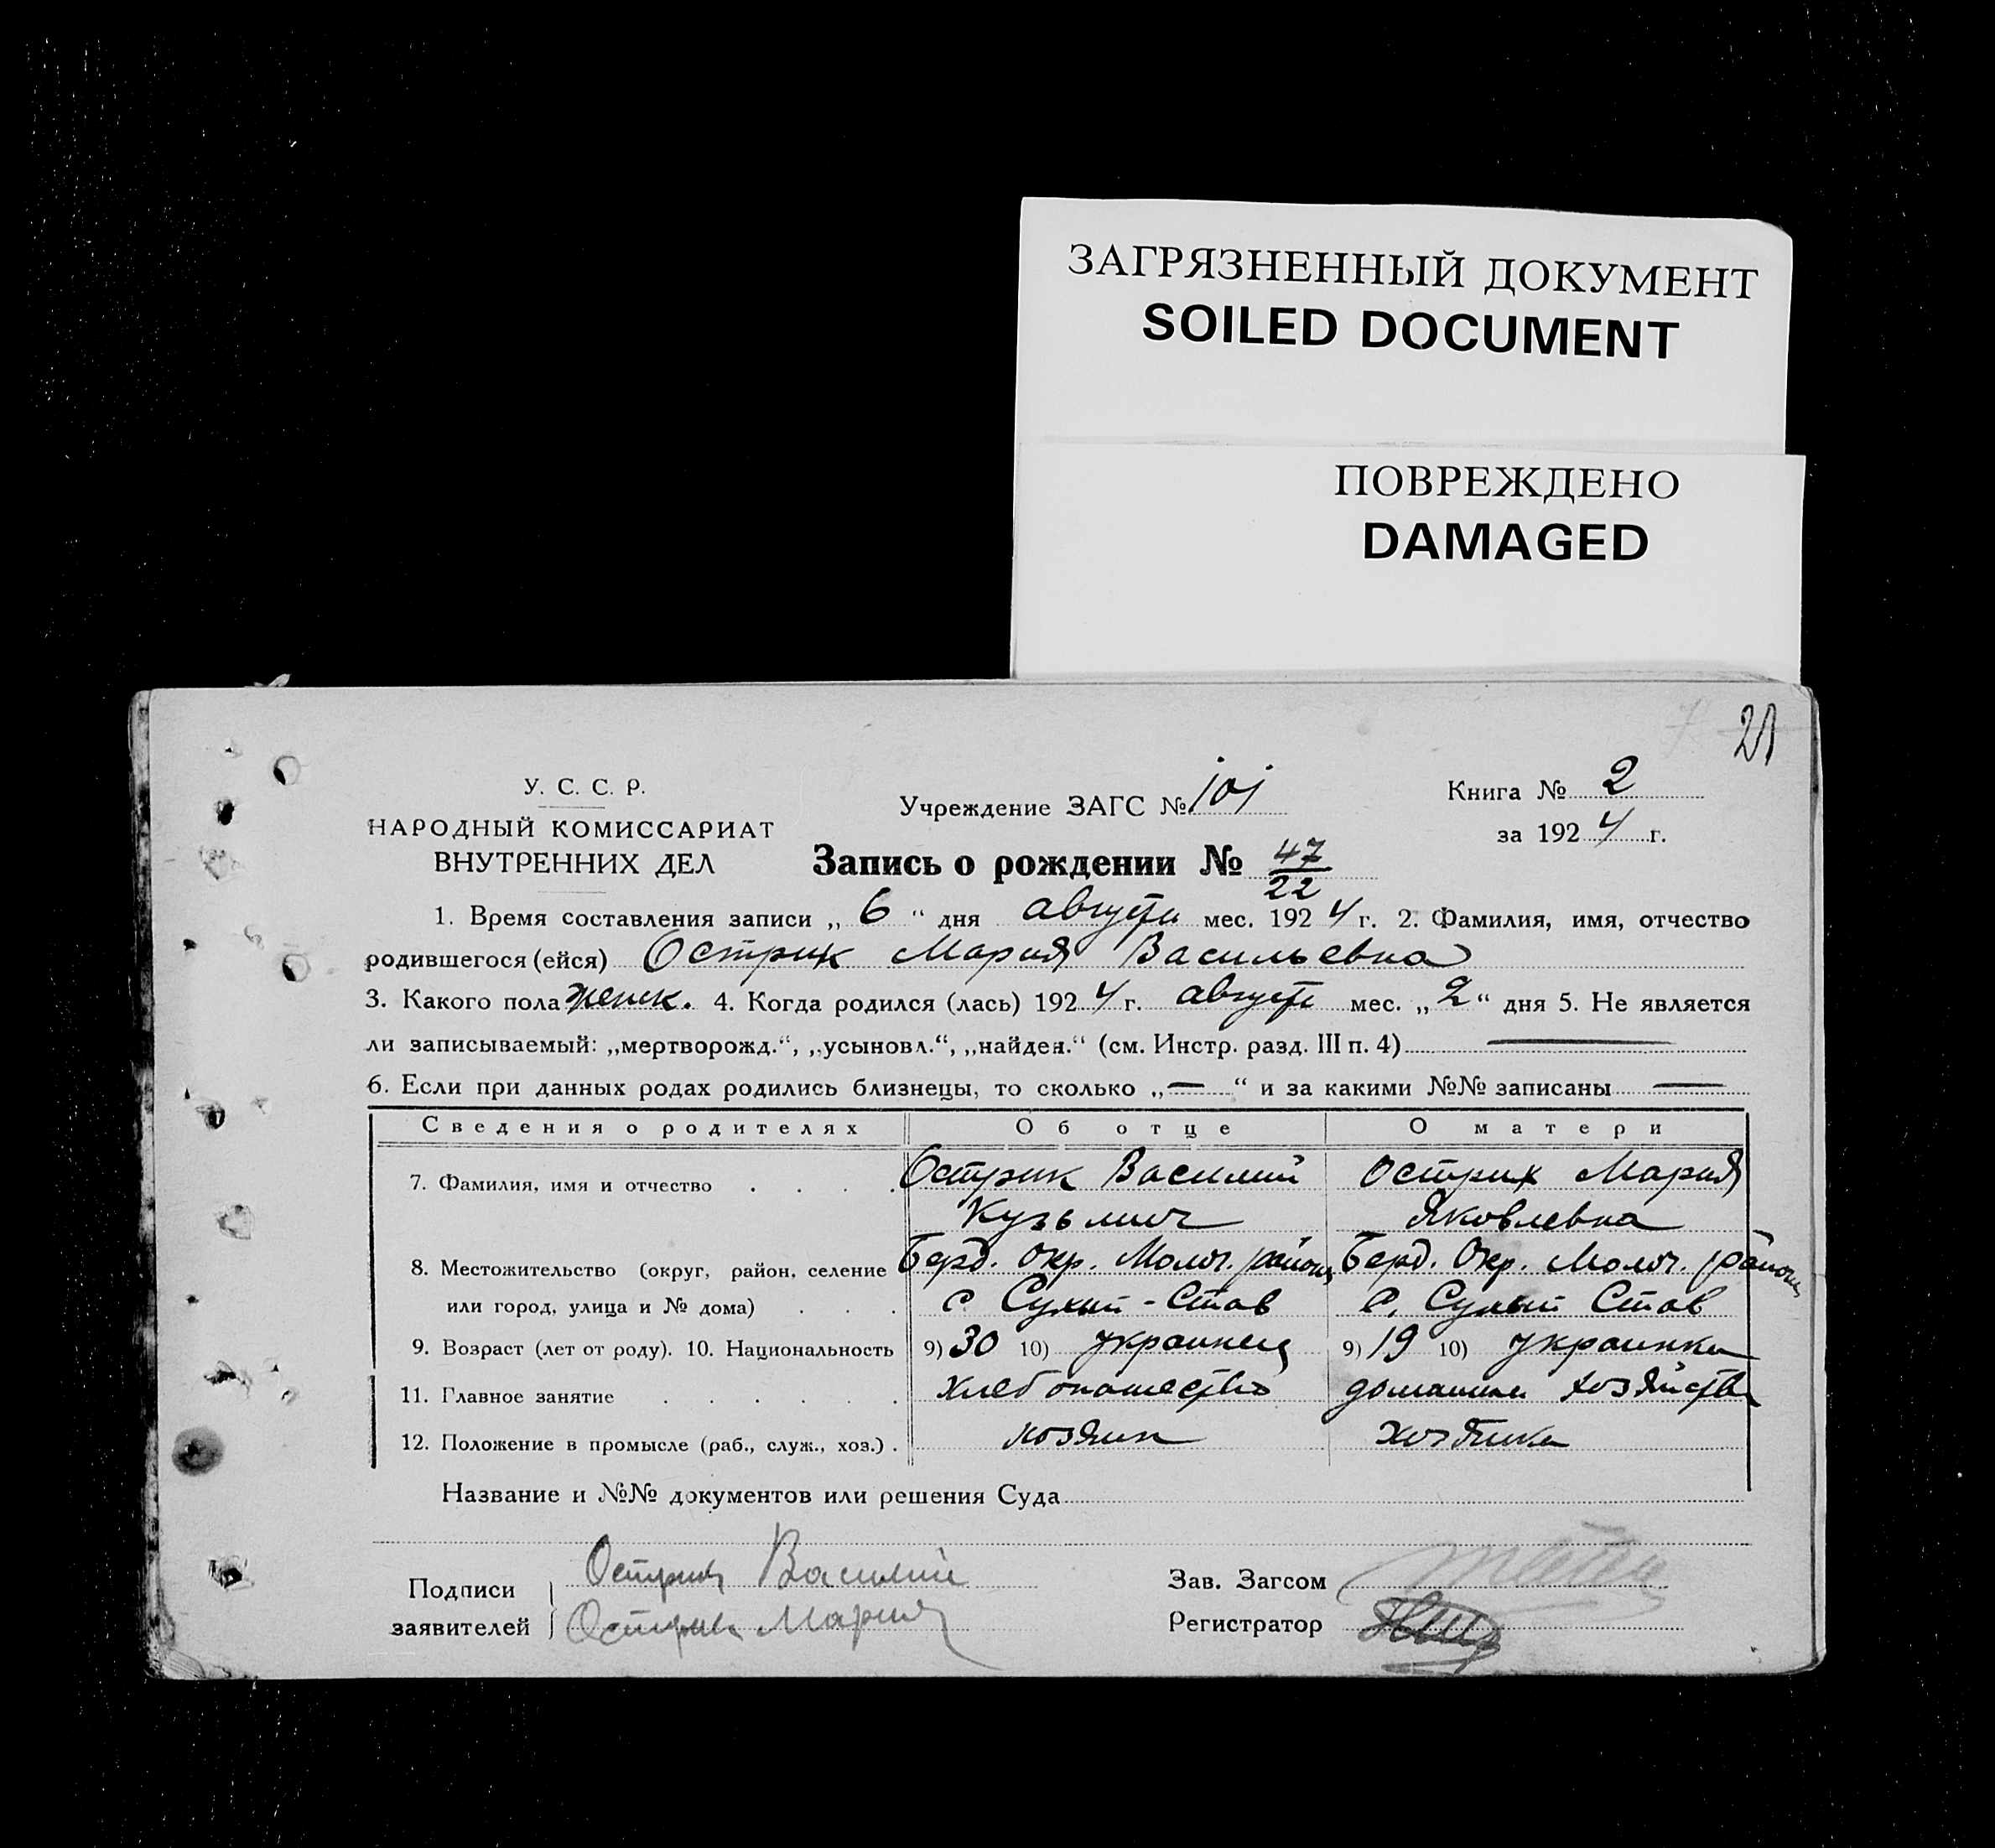 ЗАГРЯЗНЕННЫЙ ДОКУМЕНТ
SOILED DOCUMENT
ПОВРЕЖДЕНО
DAMAGED
21
У. С. С. Р.
НАРОДНЫЙ КОМИССАРИАТ
ВНУТРЕННИХ ДЕЛ
Учреждение ЗАГС № 101
Книга № 2
за 1924 г.
Запись о рождении № 47/22
1. Время составления записи „ 6 “ дня августа мес. 1924 г. 2. Фамилия, имя, отчество
родившегося (ейся) Острик Мария Васильевна
3. Какого пола женск. 4. Когда родился (лась) 1924 г. августа мес. „ 2 “ дня 5. Не является
ли записываемый: „мертворожд.“, „усыновл.“, „найден.“ (см. Инстр. разд. III п. 4) —
6. Если при данных родах родились близнецы, то сколько „ — “ и за какими №№ записаны —
Сведения о родителях Об отце О матери
7. Фамилия, имя и отчество Острик Василий Острик Мария
Кузьмич Яковлевна
8. Местожительство (округ, район, селение Берд. Окр. Молоч. района Берд. Окр. Молоч. района
или город, улица и № дома) с. Сухый-Став с. Сухый Став
9. Возраст (лет от роду). 10. Национальность 9) 30 10) украинец 9) 19 10) украинка
11. Главное занятие хлебопашество домашнее хозяйство
12. Положение в промысле (раб., служ., хоз.) хозяин хозяйка
Название и №№ документов или решения Суда
Подписи Острик Василий
заявителей Острик Мария
Зав. Загсом
Регистратор